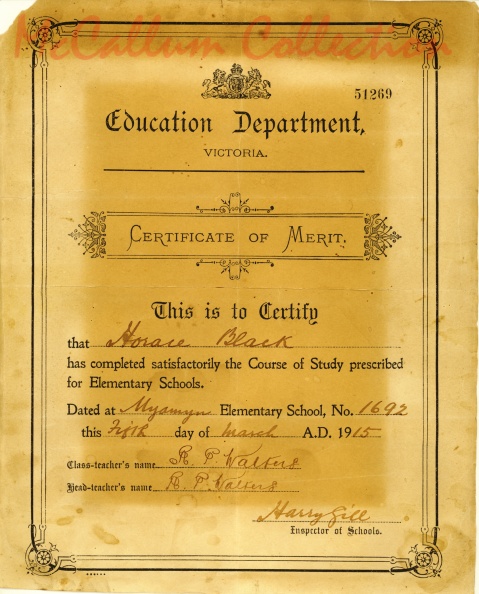 McCallum Collection
51269
Education Department,
VICTORIA.
CERTIFICATE OF MERIT.
This is to Certify
that Horace Black
has completed satisfactorily the Course of Study prescribed
for Elementary Schools.
Dated at Myamyn Elementary School, No. 1692
this Fifth day of March A.D. 1915
Class-teacher's name R. P. Walters
Head-teacher's name R. P. Walters
Harry Gill
Inspector of Schools.